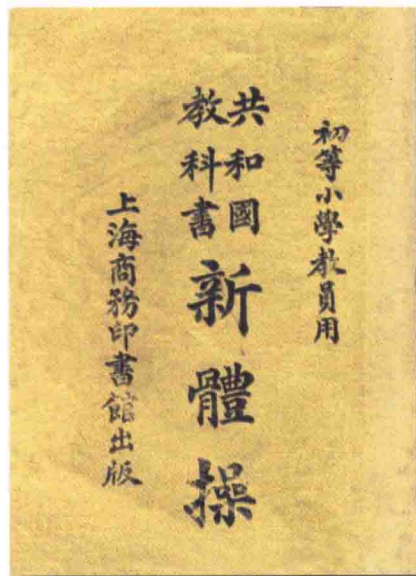 初等小學教員用
共和國
教科書
新體操
上海商務印書館出版